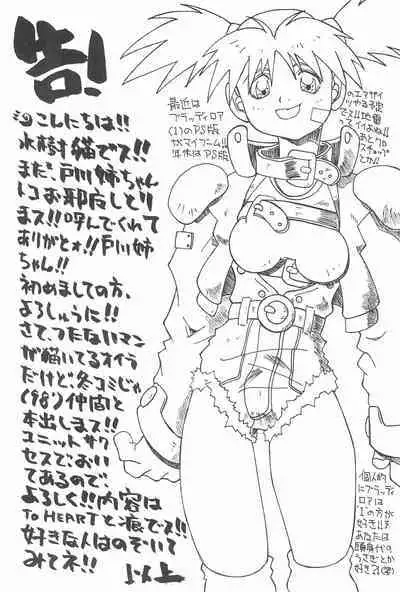 告!
こんにちは!!
水樹猫でス!!
まだ、戸川姉ちゃん
トコお邪魔しとり
まス!!呼んでくれて
ありがとォ!!戸川姉
ちゃん!!
初めましての方、
よろしゅうに!!
さて、つたないマン
が描いてるオイラ
だけど、冬コミじゃ
('98)仲間と
本出しまス!!
ユニットサク
セスで、おい
てあるので、
よろしく!!内容は
To HEARTと痕でス!!
好きな人はのぞいて
みてネ!!
以上
最近は
ブラッディロア
(1)のPS版
がマイブーム!!
年末はPS版
のエアガイ
ツやる予定
でス!!地雷
でもイイよね!!
あと
とか!!
個人的
にブラッディ
ロアは
'1'の方が
好き!!
あなたは
うさぎとか
好き?(笑)